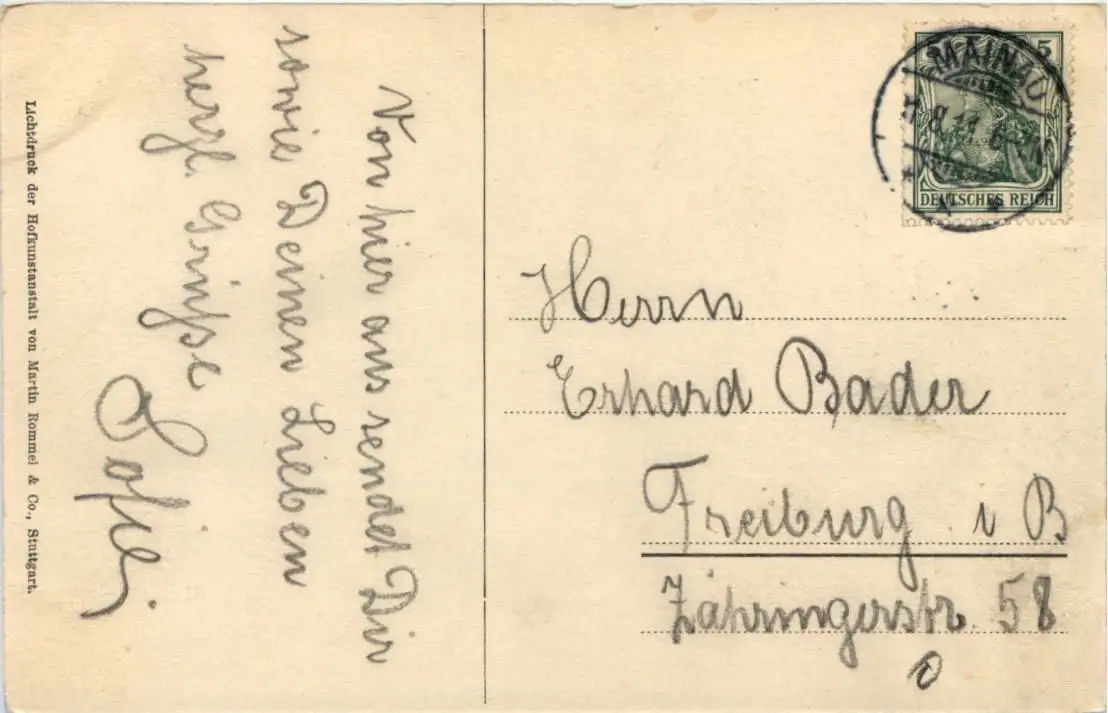 Von hier aus sendet Dir
sowie Deinen Lieben
herzl. Grüsse
Sofie
Lichtdruck der Hofkunstanstalt von Martin Rommel & Co., Stuttgart.
5
MAINAU
8.11.6-
DEUTSCHES REICH
Herrn
Erhard Bader
Freiburg i B
Zähringerstr. 58